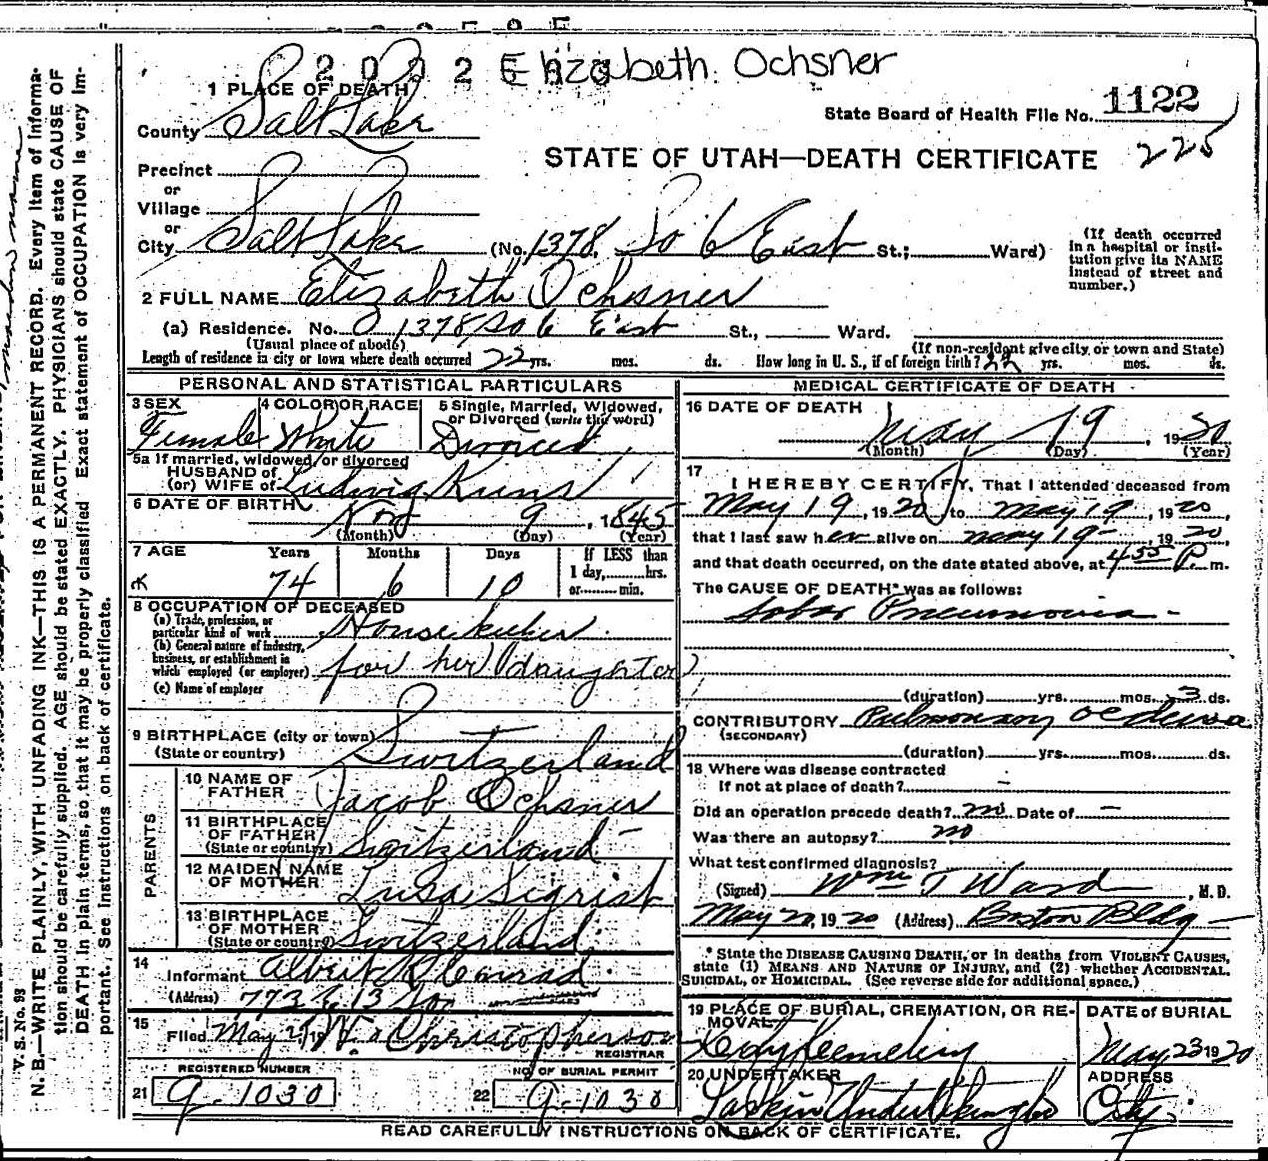 Elizabeth Ochsner
1 PLACE OF DEATH
State Board of Health File No. 1122
County Salt Lake
STATE OF UTAH—DEATH CERTIFICATE 225
Precinct
or
Village
or
City Salt Lake (No. 1378 So 6 East St.; Ward)
(If death occurred in a hospital or institution give its NAME instead of street and number.)
2 FULL NAME Elizabeth Ochsner
(a) Residence. No. 1378 So 6 East St., Ward.
(Usual place of abode) (If non-resident give city or town and State)
Length of residence in city or town where death occurred 22 yrs. mos. ds. How long in U. S., if of foreign birth? 22 yrs. mos. ds.
PERSONAL AND STATISTICAL PARTICULARS
3 SEX Female
4 COLOR OR RACE White
5 Single, Married, Widowed, or Divorced (write the word) Divorced
5a If married, widowed, or divorced
HUSBAND of
(or) WIFE of Ludwig Kuns
6 DATE OF BIRTH Nov 9, 1845
(Month) (Day) (Year)
7 AGE Years Months Days If LESS than
74 6 10 1 day, hrs.
or min.
8 OCCUPATION OF DECEASED
(a) Trade, profession, or particular kind of work Housekeeker
(b) General nature of industry, business, or establishment in which employed (or employer) for her daughter
(c) Name of employer
9 BIRTHPLACE (city or town)
(State or country) Switzerland
PARENTS
10 NAME OF FATHER Jacob Ochsner
11 BIRTHPLACE OF FATHER (State or country) Switzerland
12 MAIDEN NAME OF MOTHER Luisa Sigrist
13 BIRTHPLACE OF MOTHER (State or country) Switzerland
14
Informant Albert
(Address) 773 E 13 So
15
Filed May 21, 19 W. Christopherson
REGISTRAR
REGISTERED NUMBER
21 9-1030
NO. OF BURIAL PERMIT
22 9-1030
MEDICAL CERTIFICATE OF DEATH
16 DATE OF DEATH
May 19, 1920
(Month) (Day) (Year)
17
I HEREBY CERTIFY, That I attended deceased from
May 19, 1920, to May 19, 1920,
that I last saw her alive on May 19, 1920,
and that death occurred, on the date stated above, at 4 55 P. m.
The CAUSE OF DEATH* was as follows:
Lobar Pneumonia
(duration) yrs. mos. 3 ds.
CONTRIBUTORY Pulmonary oedema
(SECONDARY)
(duration) yrs. mos. ds.
18 Where was disease contracted
If not at place of death? –
Did an operation precede death? no Date of –
Was there an autopsy? no
What test confirmed diagnosis?
(Signed) Wm T Ward, M. D.
May 20, 1920 (Address) Boston Bldg
* State the DISEASE CAUSING DEATH, or in deaths from VIOLENT CAUSES,
state (1) MEANS AND NATURE OF INJURY, and (2) whether ACCIDENTAL,
SUICIDAL, or HOMICIDAL. (See reverse side for additional space.)
19 PLACE OF BURIAL, CREMATION, OR REMOVAL
City Cemetery
DATE OF BURIAL
May 23 1920
20 UNDERTAKER
ADDRESS
City
READ CAREFULLY INSTRUCTIONS ON BACK OF CERTIFICATE.
V. S. No. 93
N. B.—WRITE PLAINLY, WITH UNFADING INK—THIS IS A PERMANENT RECORD. Every item of information should be carefully supplied. AGE should be stated EXACTLY. PHYSICIANS should state CAUSE OF DEATH in plain terms, so that it may be properly classified. Exact statement of OCCUPATION is very important. See instructions on back of certificate.